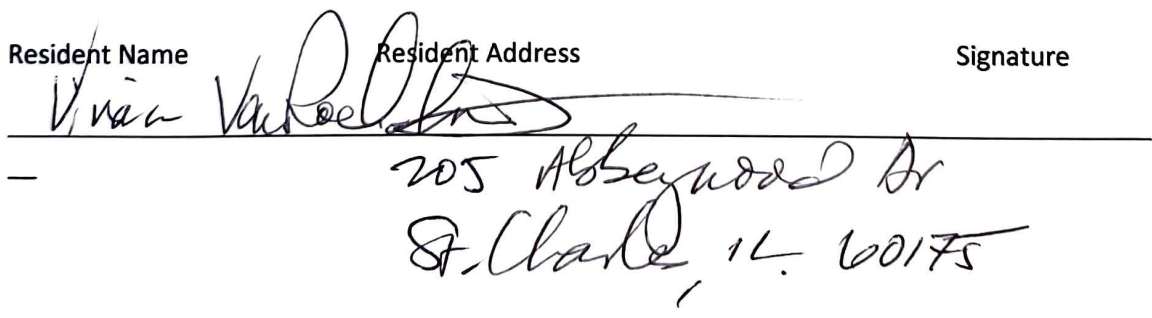 Resident Name Resident Address Signature
Vivian
205 Abbeywood Dr
St. Charles, IL. 60175